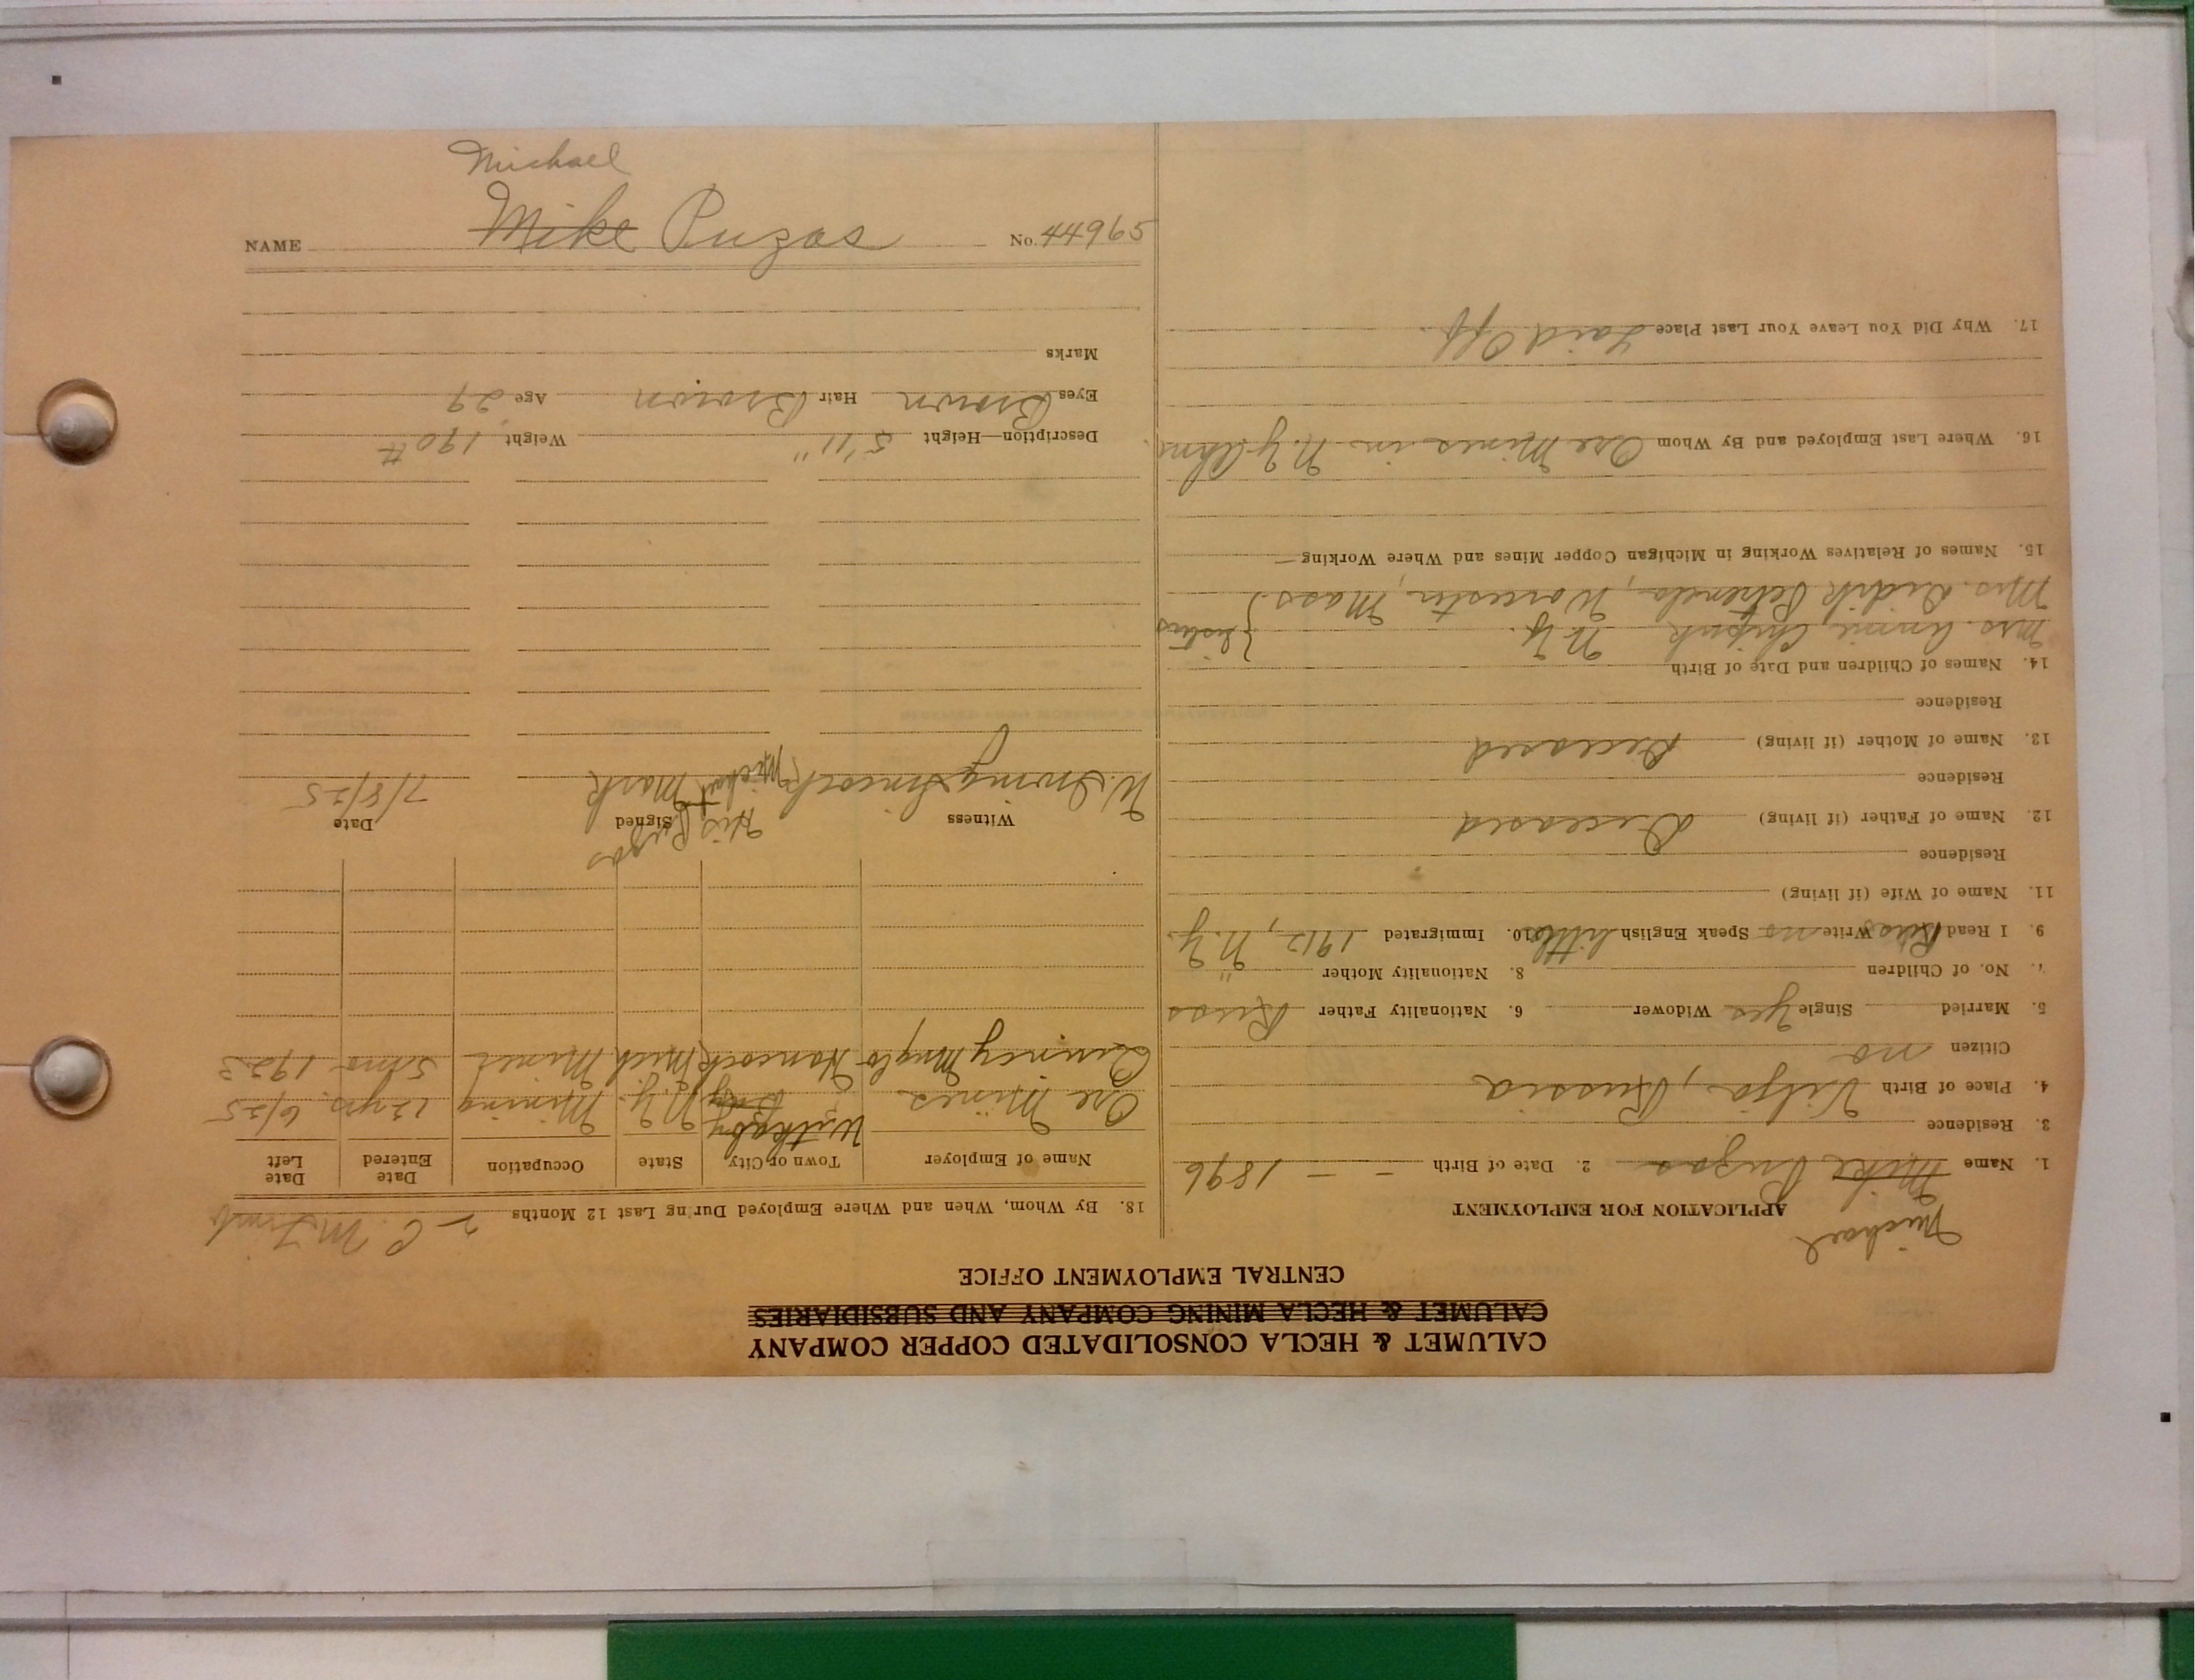 Michael
NAME Mike Puzas No. 44965
CALUMET & HECLA CONSOLIDATED COPPER COMPANY
CALUMET & HECLA MINING COMPANY AND SUBSIDIARIES
CENTRAL EMPLOYMENT OFFICE
Michael
APPLICATION FOR EMPLOYMENT
1. Name Mike Puzas 2. Date of Birth — — 1896
3. Residence
4. Place of Birth Vilja, Russia
Citizen no
5. Married Single yes Widower 6. Nationality Father Russ
7. No. of Children 8. Nationality Mother "
9. I Read Russ Write no Speak English little 10. Immigrated 1912, N.Y.
11. Name of Wife (if living)
Residence
12. Name of Father (if living) Deceased
Residence
13. Name of Mother (if living) Deceased
Residence
14. Names of Children and Date of Birth
Mrs. Annie N.Y. } Sisters
Mrs. Worcester, Mass }
15. Names of Relatives Working in Michigan Copper Mines and Where Working —
16. Where Last Employed and By Whom Ore Mines in N.Y.
17. Why Did You Leave Your Last Place Laid Off.
18. By Whom, When and Where Employed During Last 12 Months 2 - C.
Name of Employer Town or City State Occupation Date Entered Date Left
Ore Mines N.Y. Mining 12 yrs. 6/25
Quincy Mng Co Hancock Mich Miner 5 mo 1923
Witness Signed Date
W. Irving His Michael Puzas + Mark 7/8/25
Description—Height 5'11" Weight 190 #
Eyes Brown Hair Brown Age 29
Marks